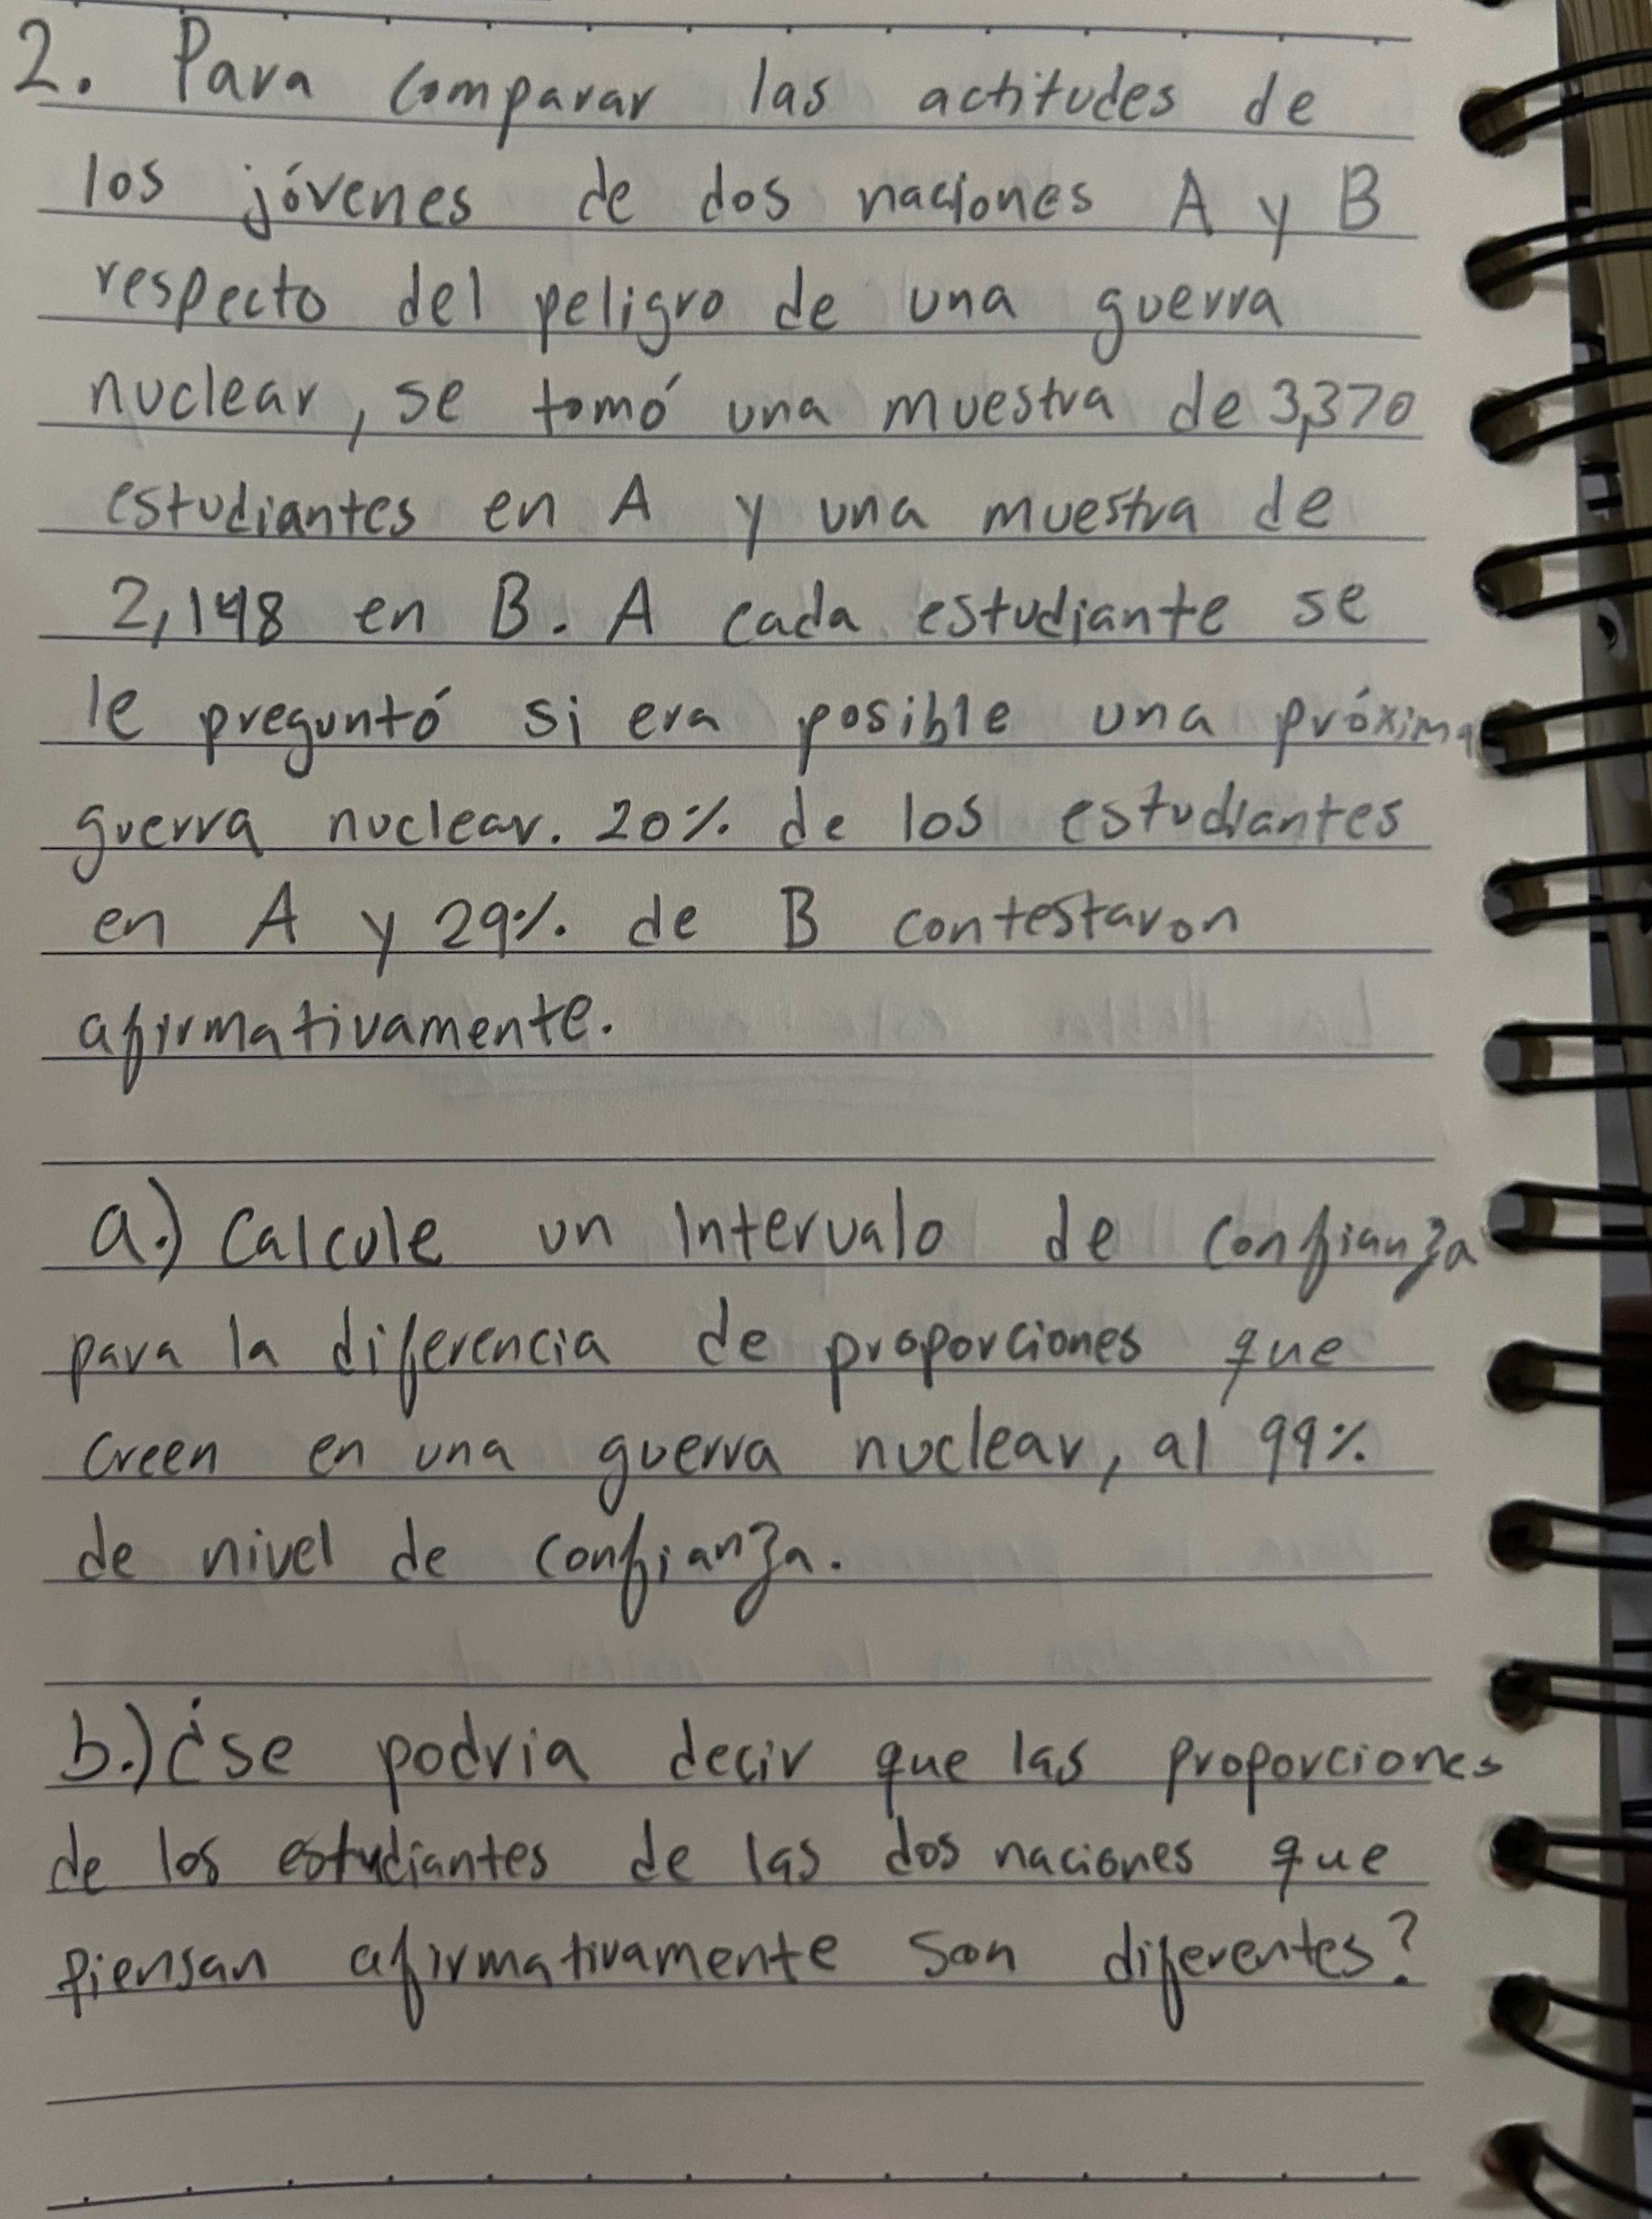 2. Para comparar las actitudes de
los jóvenes de dos naciones A y B
respecto del peligro de una guerra
nuclear, se tomó una muestra de 3,370
estudiantes en A y una muestra de
2,148 en B. A cada estudiante se
le preguntó si era posible una próxima
guerra nuclear. 20% de los estudiantes
en A y 29% de B contestaron
afirmativamente.
a.) Calcule un intervalo de confianza
para la diferencia de proporciones que
creen en una guerra nuclear, al 99%
de nivel de confianza.
b.) ¿se podria decir que las proporciones
de los estudiantes de las dos naciones que
piensan afirmativamente son diferentes?